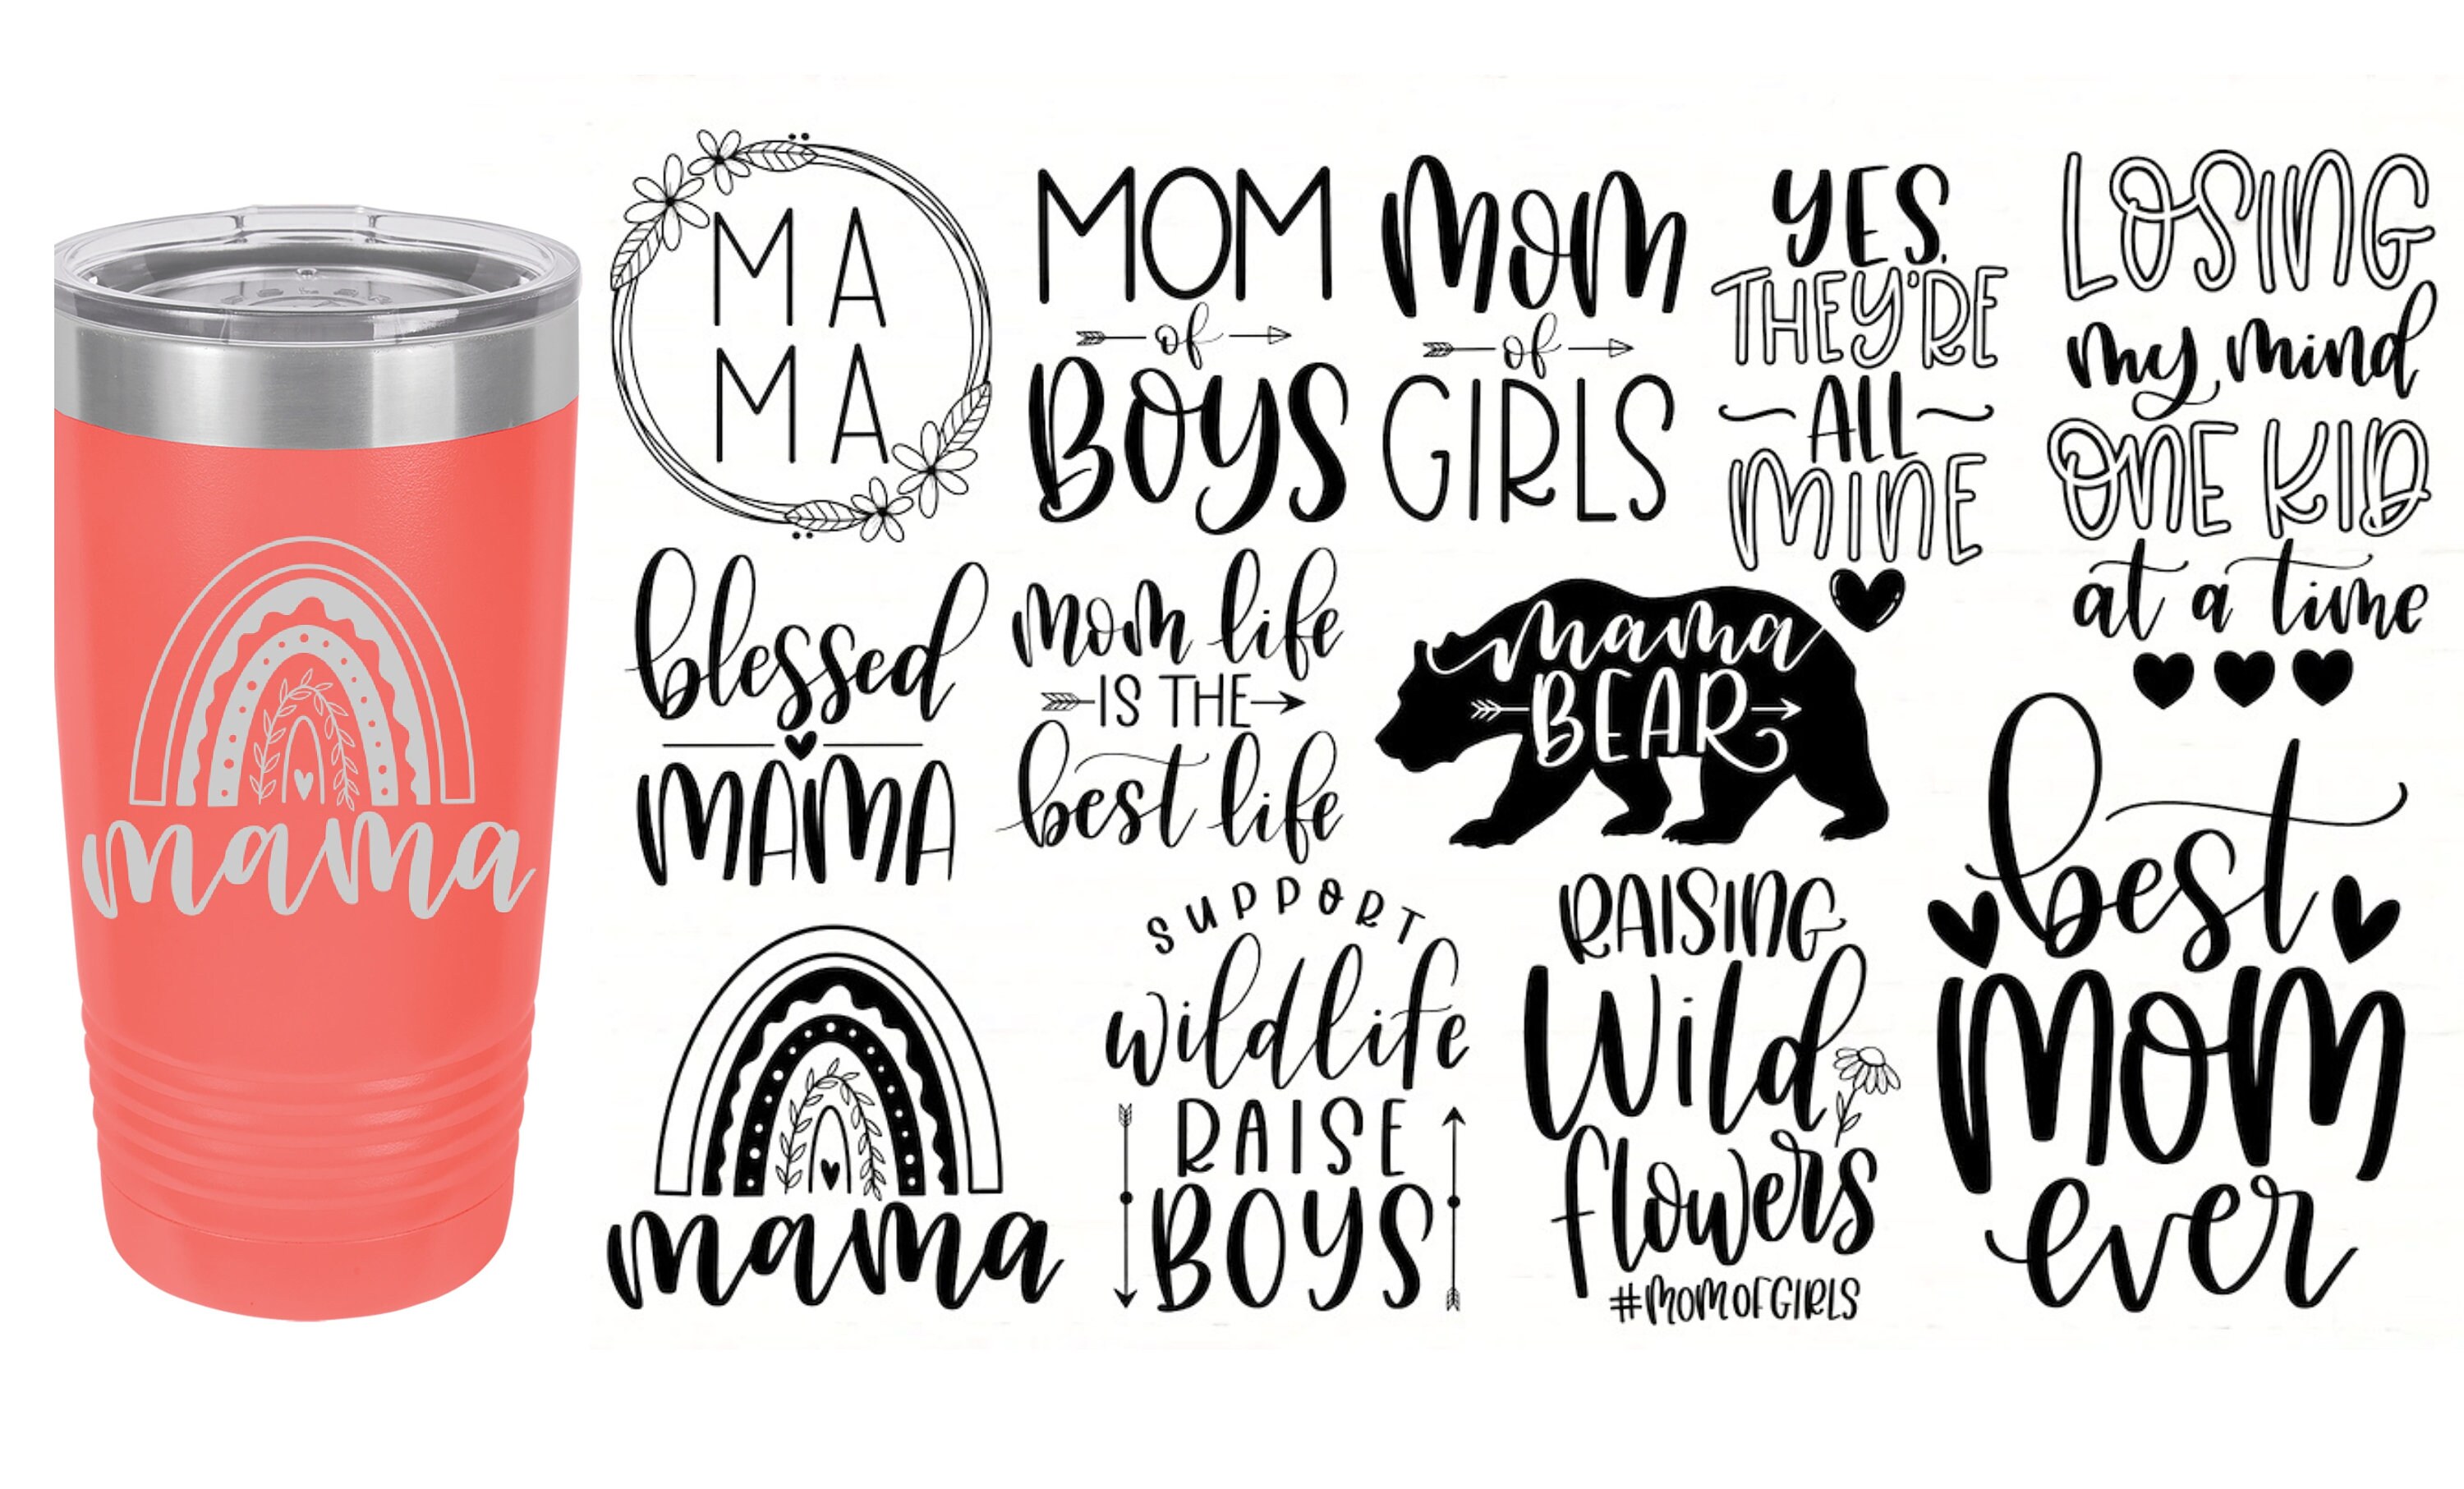 mama
MA
MA
MOM
of
BOYS
mom
of
GIRLS
YES,
THEY'RE
ALL
MINE
LOSING
my mind
ONE KID
at a time
blessed
MAMA
mom life
IS THE
best life
mama
BEAR
best
mom
ever
mama
SUPPORT
wildlife
RAISE
BOYS
RAISING
Wild
flowers
#MOMOFGIRLS